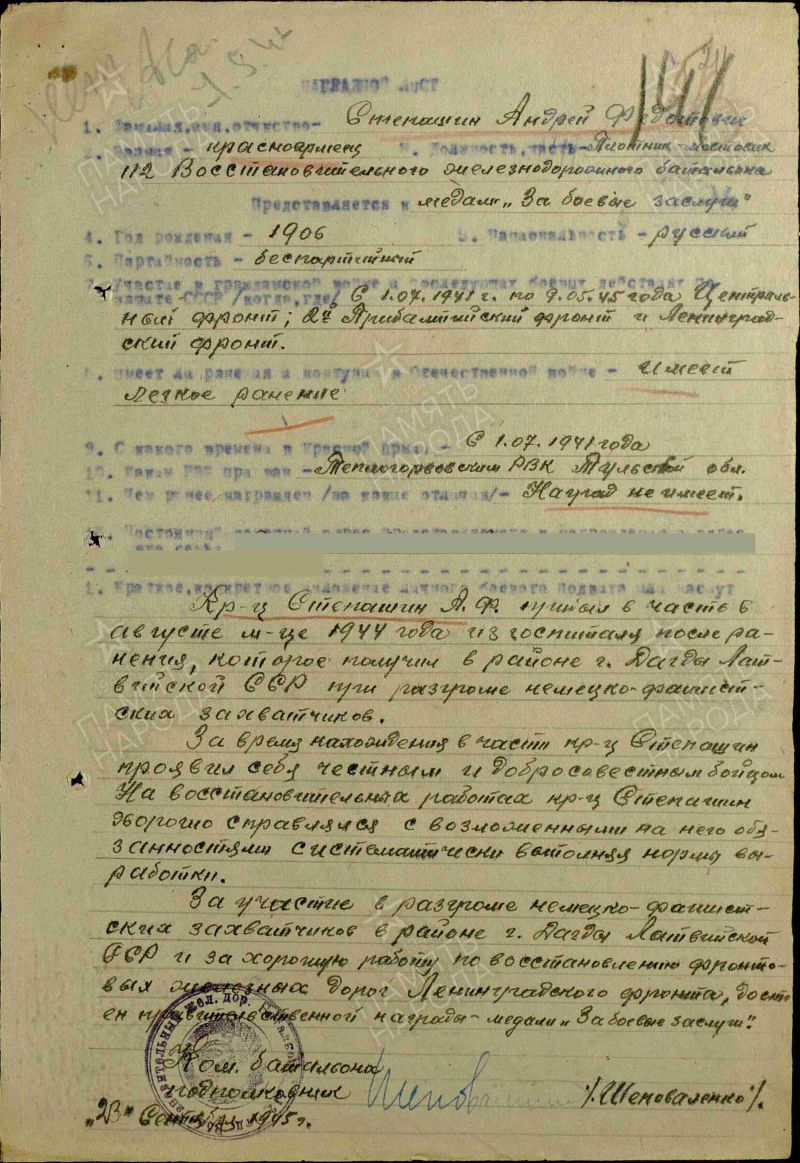 НАГРАДНОЙ ЛИСТ
1. Фамилия, имя, отчество- Степашин Андрей Федотович
2. Звание - красноармеец 3. Должность, часть- Плотник-мостовик
112 Восстановительного железнодорожного батальона
Представляется к медали „За боевые заслуги"
4. Год рождения - 1906 5. Национальность - русский
6. Партийность - беспартийный
7. Участие в гражданской войне и последующих боевых действиях по
защите СССР /когда, где/ С 1.07.1941 г. по 9.05.45 года Централь-
ный фронт; 2й Прибалтийский фронт и Ленинград-
ский фронт.
8. Имеет ли ранения и контузии в Отечественной войне - имеет
легкое ранение
9. С какого времени в Красной Армии - С 1.07.1941 года
10. Каким РВК призван - Теплогорвовским РВК Тульской обл.
11. Чем ранее награжден /за какие отличия/- Наград не имеет.
12. Постоянный домашний адрес представляемого к награждению и адрес
его семьи
1. Краткое, конкретное изложение личного боевого подвига или заслуг
Кр-ц Степашин А. Ф. прибыл в часть в
августе м-це 1944 года из госпиталя после ра-
нения, которое получил в районе г. Дагды Лат-
вийской ССР при разгроме немецко-фашист-
ских захватчиков.
За время нахождения в части кр-ц Степашин
проявил себя честным и добросовестным бойцом
На восстановительных работах кр-ц Степашин
хорошо справлялся с возложенными на него обя-
занностями систематически выполняя нормы вы-
работки.
За участие в разгроме немецко-фашист-
ских захватчиков в районе г. Дагды Латвийской
ССР и за хорошую работу по восстановлению фронто-
вых железных дорог Ленинградского фронта, досто-
ен правительственной награды - медали „За боевые заслуги".
Ком. батальона
подполковник /Шеповаленко/.
„23" Сентября 1945 г.
ПАМЯТЬ НАРОДА